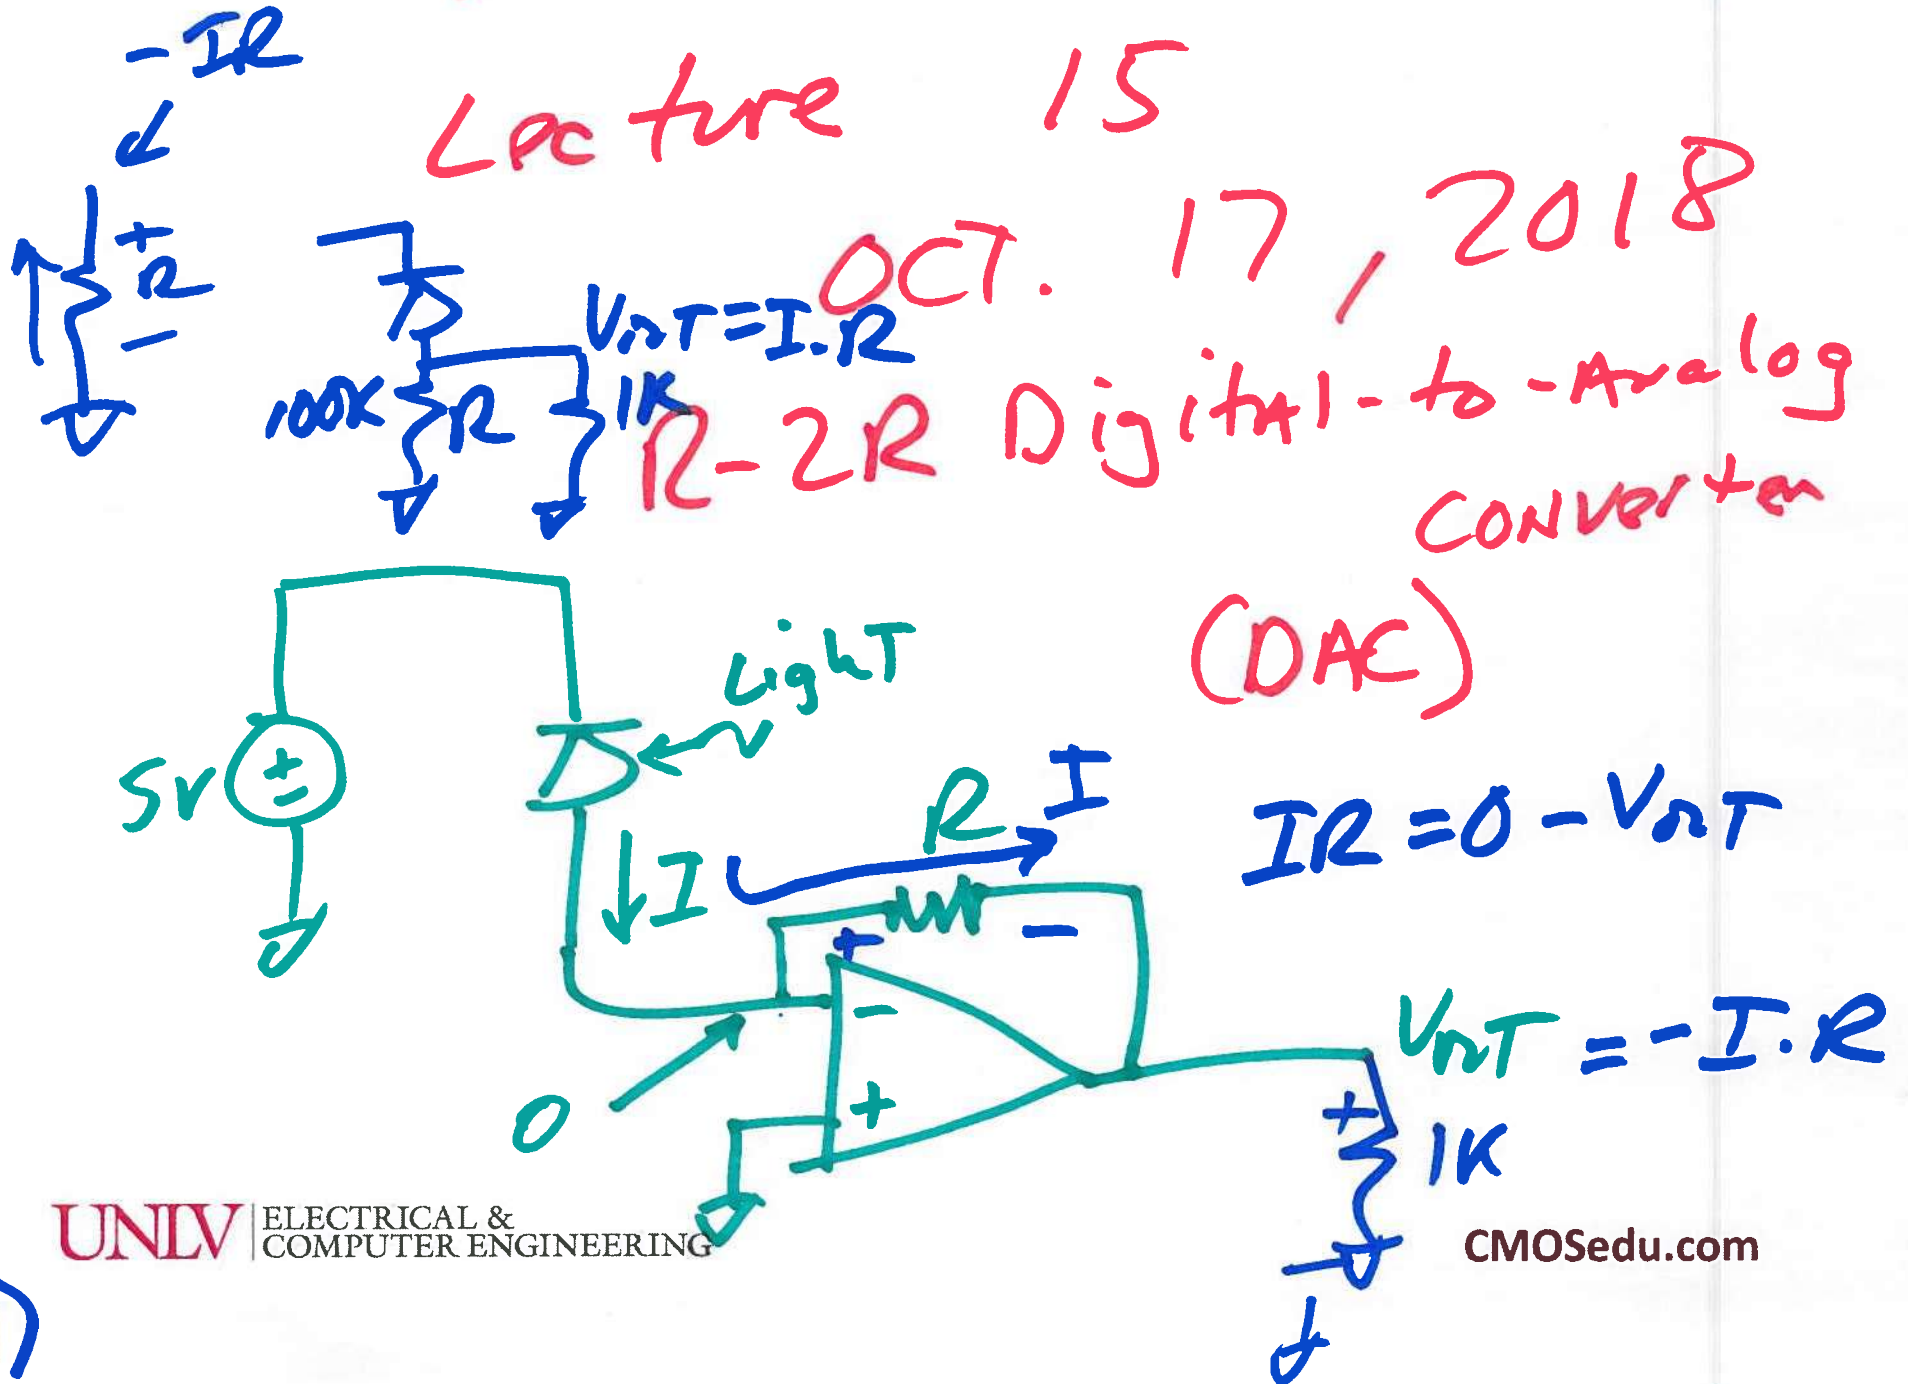 -IR
Lecture 15
OCT. 17, 2018
+
R
-
VOUT=I.R
100K R 1K
R-2R Digital-to-Analog
CONVerter
(DAC)
Light
5V
+
-
R I
IR=0-VOUT
I
+ -
-
VOUT=-I.R
0
+
+
1K
UNLV ELECTRICAL &
COMPUTER ENGINEERING
CMOSedu.com